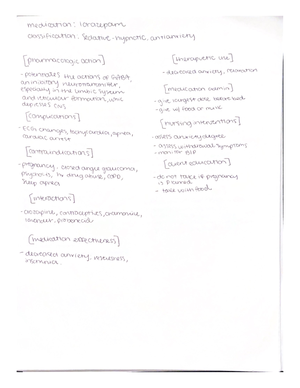 medication: lorazepam
classification: sedative-hypnotic, antianxiety
[pharmacologic action]
- potentiates the actions of GABA,
an inhibitory neurotransmitter,
especially in the limbic system
and reticular formation, which
depresses CNS.
[complications]
- ECG changes, tachycardia, apnea,
cardiac arrest
[contraindications]
- pregnancy, closed angle glaucoma,
psychosis, hx drug abuse, COPD,
sleep apnea
[interactions]
- clozapine, contraceptives,
probenecid
[medication effectiveness]
- decreased anxiety, restlessness,
insomnia
[therapeutic use]
- decreased anxiety, sedation
[medication admin]
- give largest dose before bed
- give w/ food or milk
[nursing interventions]
- assess anxiety degree
- assess withdrawal symptoms
- monitor BP
[client education]
- do not take if pregnancy
is planned
- take with food